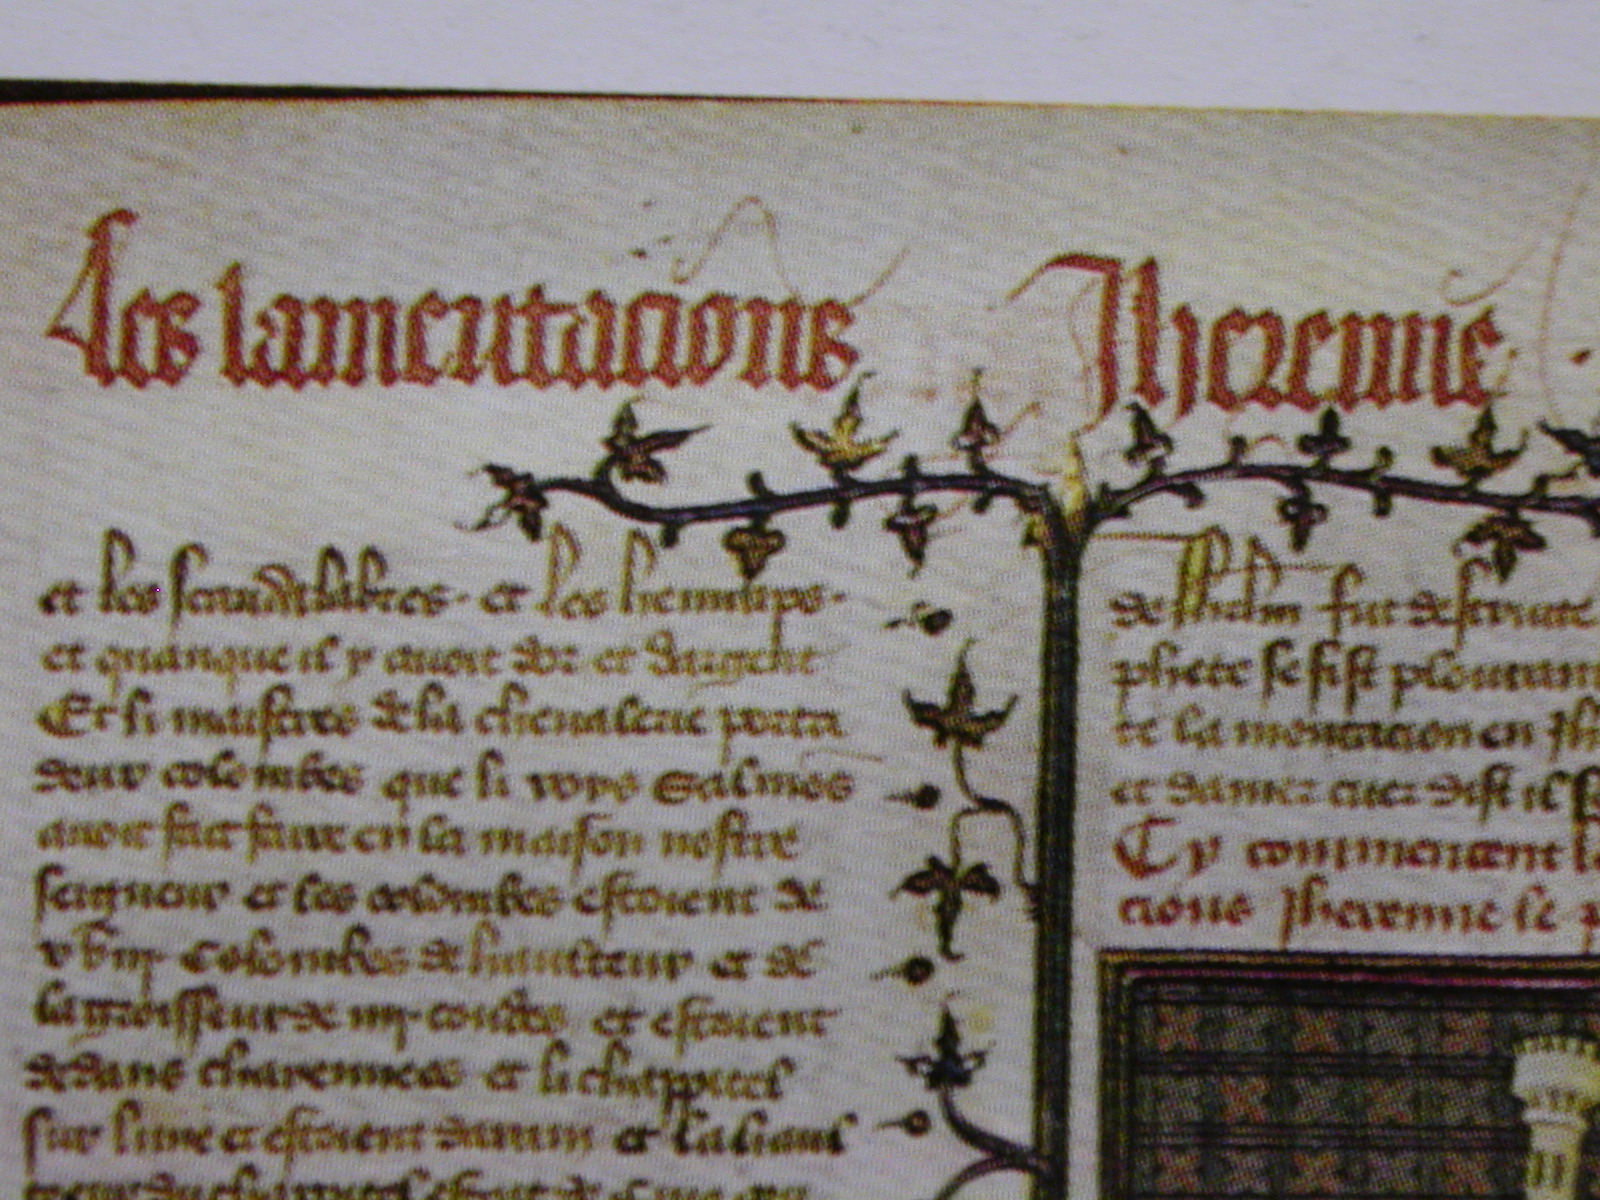 Les lamentacions Jheremie
et les et les hennaps
et quanque il y auoit dor et dargent
Et li maistres de la cheualerie porta
deux colombes que li roys Salmos
auoit fait faire en la maison nostre
seigneur et les colombes estoient de
colombes de haulteur et de
la groisseur de iiij coudes et estoient
dedans et li chappitel
sur lune et estoient darain et
de fu destruite
phete se sist plourant
te la mentacion en
et damer cuer dist il
Cy commencent
cions Jheremie le